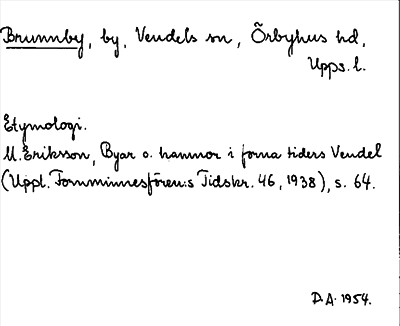 Brunnby, by, Vendels sn, Örbyhus hd,
Upps. l.
Etymologi.
M. Eriksson, Byar o. hamnor i forna tiders Vendel
(Uppl. Fornminnesfören:s Tidskr. 46, 1938), s. 64.
D.A. 1954.